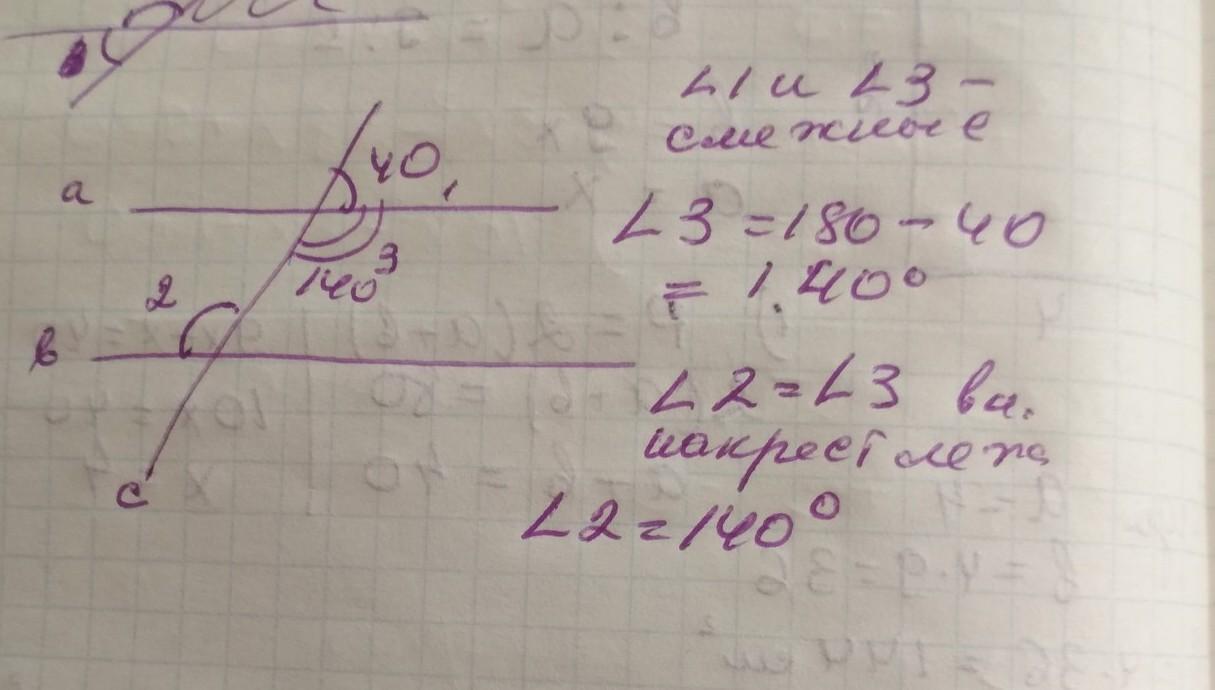 a
40
1
3
140
2
в
с
∠1 и ∠3 –
смежные
∠3 = 180 – 40
= 140°
∠2 = ∠3 вн.
накрест леж
∠2 = 140°